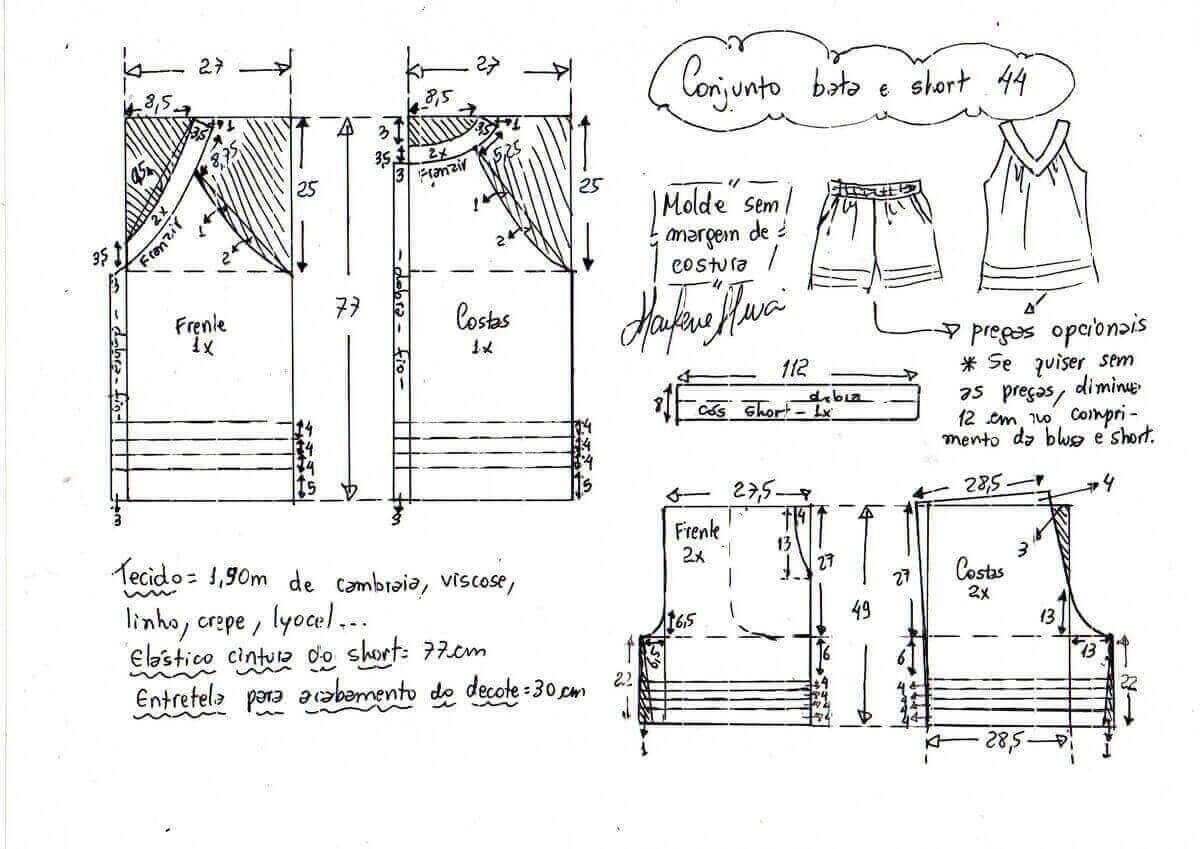 Conjunto bata e short 44
27
8,5
3,5
1
8,75
0,5
2x
Franzir
3,5
3
1
2
25
77
Frente
1x
4
4
4
5
3
27
8,5
3
3,5
1
5,25
3,5
2x
Franzir
3
1
2
25
dobra - fio
Costas
1x
4
4
4
5
3
Molde sem
margem de
costura
pregas opcionais
* Se quiser sem
as pregas, diminue
12 cm no compri-
mento da blusa e short.
112
8
dobra
cós short - 1x
27,5
Frente
2x
4
13
27
49
6,5
6,5
6
22
4
4
4
1
28,5
4
3
Costas
2x
27
13
13
6
4
4
4
22
1
28,5
Tecido = 1,90m de cambraia, viscose,
linho, crepe, lyocel...
Elástico cintura do short = 77cm
Entretela para acabamento do decote = 30cm